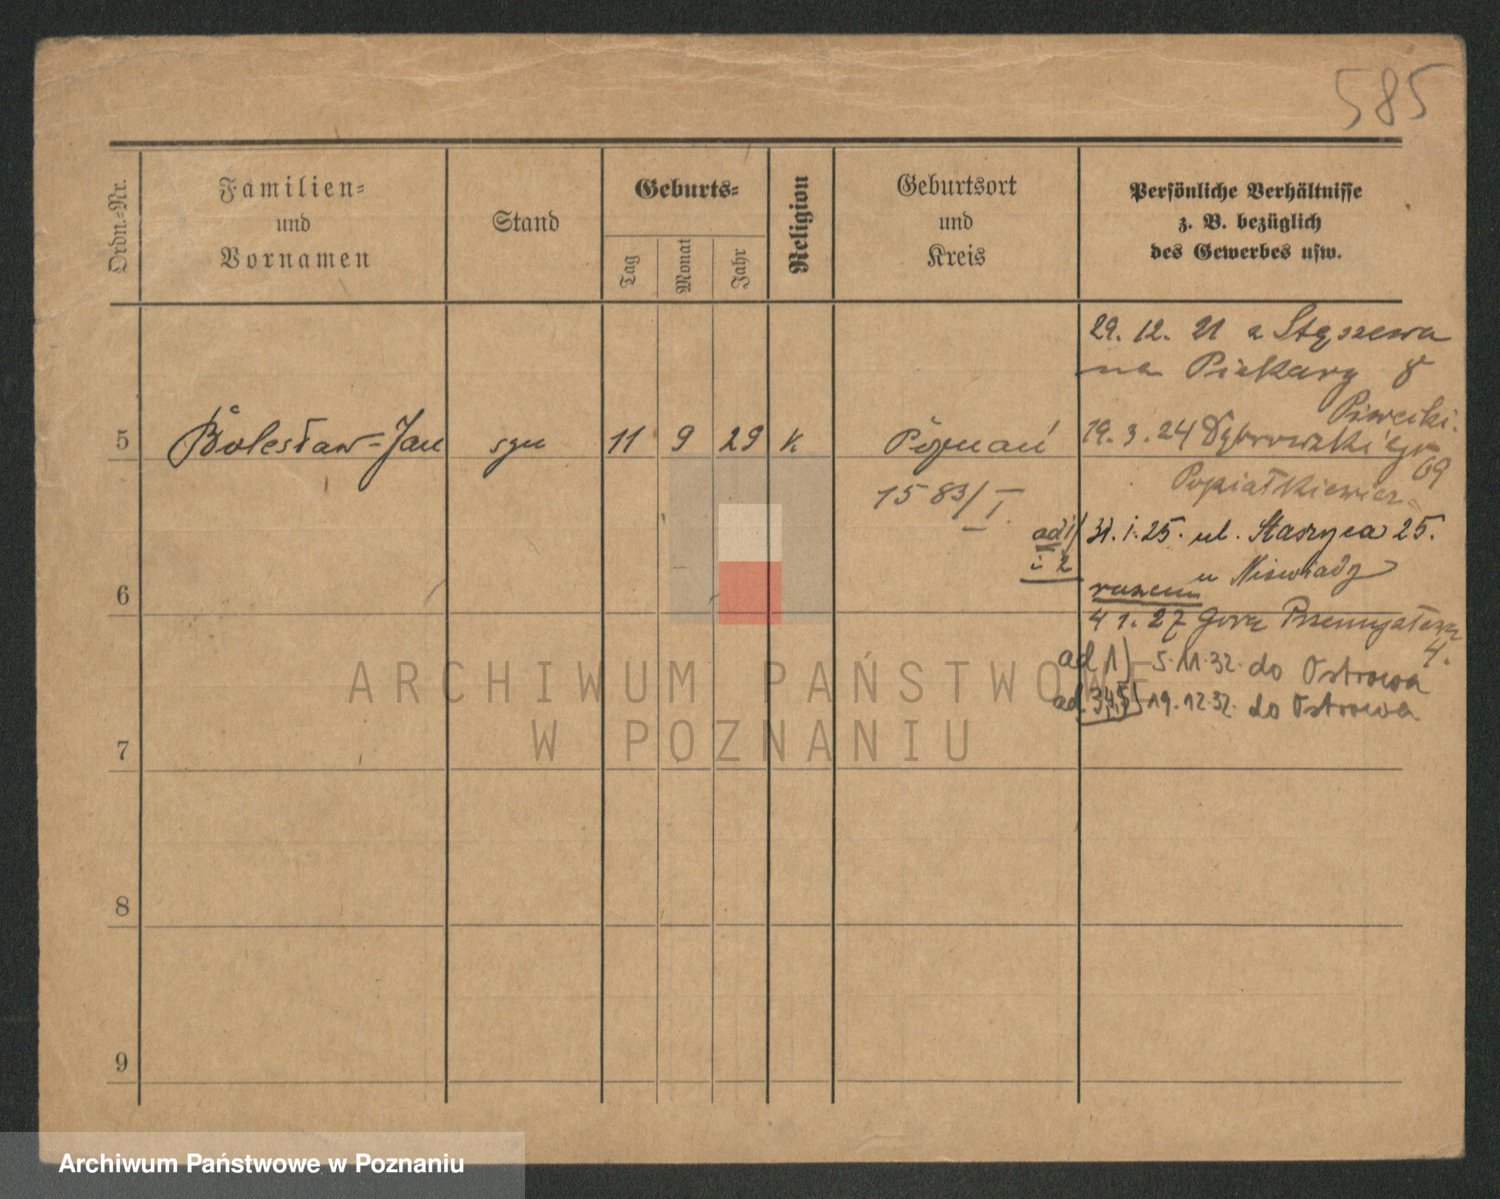 585
Ordn.-Nr.
Familien-
und
Vornamen
Stand
Geburts-
Tag
Monat
Jahr
Religion
Geburtsort
und
Kreis
Persönliche Verhältnisse
z. B. bezüglich
des Gewerbes usw.
29. 12. 21 z Stęszewa
na Piekary 8
Piwecki.
5 Bolesław-Jan syn 11 9 29 k Poznań 19. 3. 24 Dąbrowskiego 69
1583/I. Popiałkiewicz
ad 1/ 31. 1. 25. ul. Staszyca 25.
i 2 u
razem
6
4 1. 27 Góra Przemysława
4.
ad 1) 5. 11. 32. do Ostrowa
ad 3,4,5) 19. 12. 32. do Ostrowa
7
8
9
ARCHIWUM PAŃSTWOWE
W POZNANIU
Archiwum Państwowe w Poznaniu